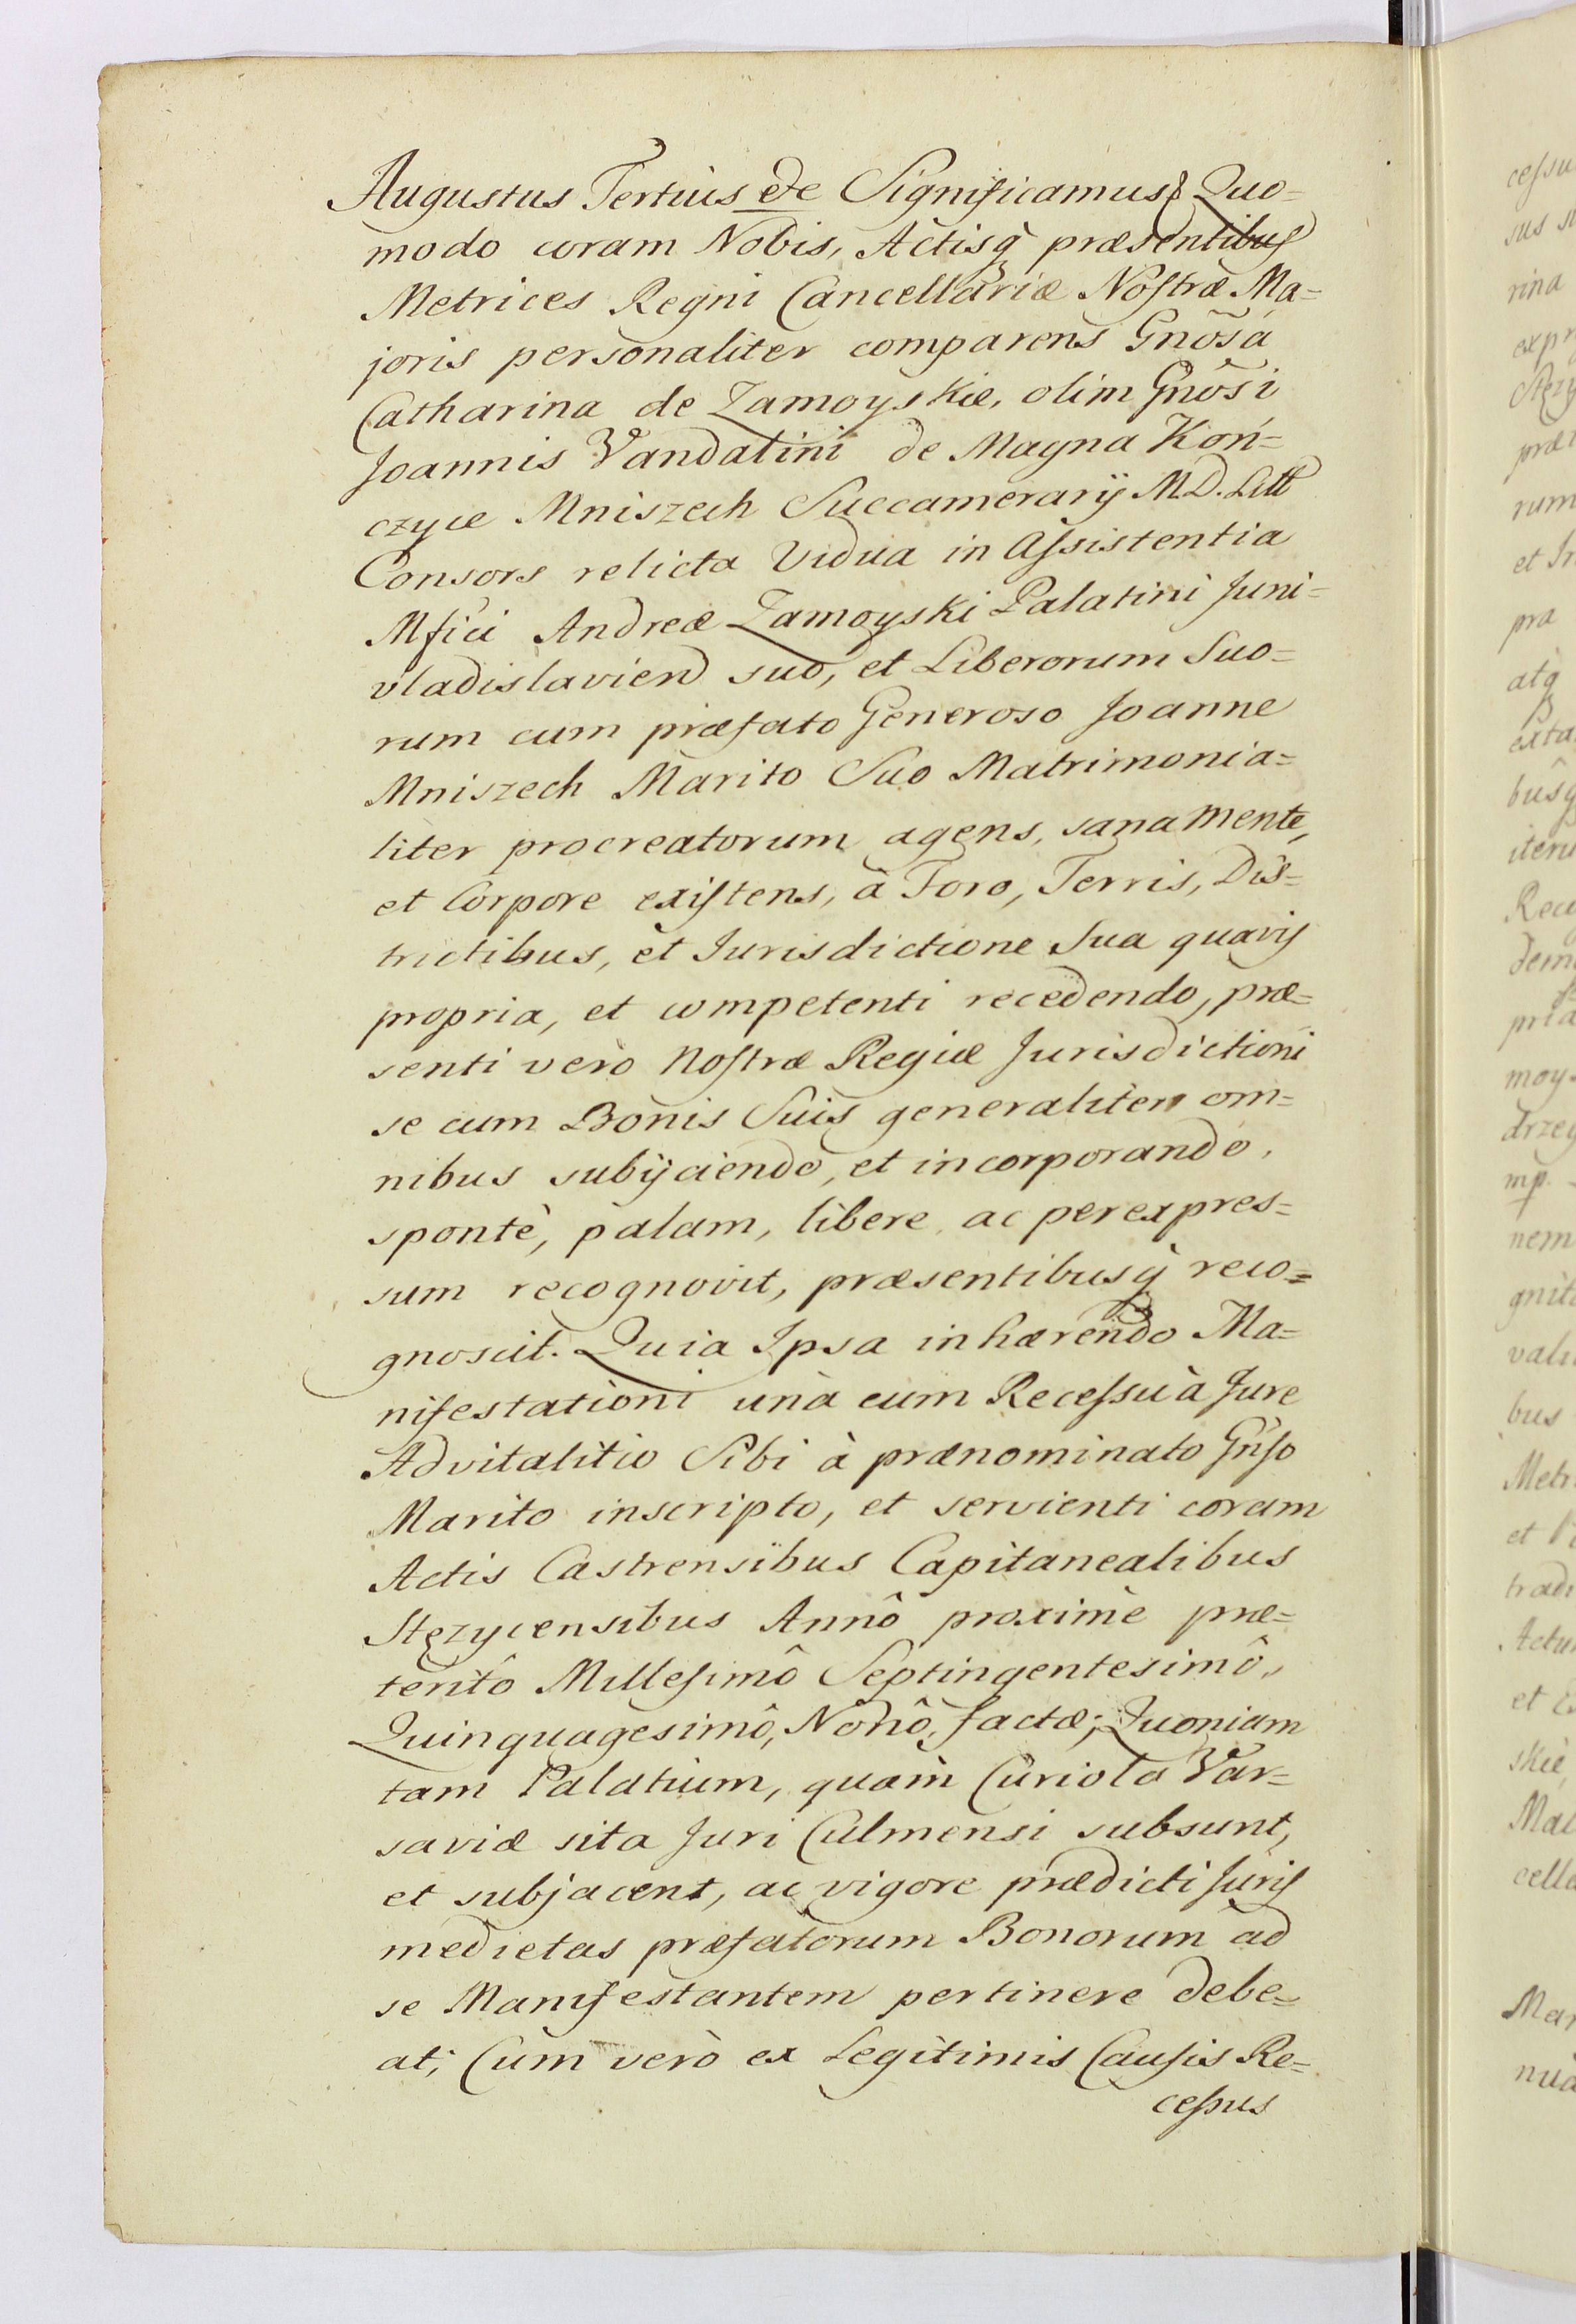 Augustus Tertius etc Significamus & Quo=
modo coram Nobis, Actisq̀ præsentibus
Metrices Regni Cancellariæ Nostræ Ma=
joris personaliter comparens Gnõsa
Catharina de Zamoyskie, olim Gnõsi
Joannis Vandalini de Magna Koń=
czyce Mniszech Succamerarÿ M.D. Litt
Consors relicta Vidua in Assistentia
Mfici Andreæ Zamoyski Palatini Juni=
vladislavien suo, et Liberorum Suo=
rum cum præfato Generoso Joanne
Mniszech Marito Suo Matrimonia=
liter procreatorum agens, sana mente,
et Corpore existens, à Foro, Terris, Dis=
trictibus, et Jurisdictione Sua quavis
propria, et competenti recedendo, præ=
senti verò Nostræ Regiæ Jurisdictioni
se cum Bonis Suis generaliter om=
nibus subÿciendo, et incorporando,
spontè, palam, libere ac per expres=
sum recognovit, præsentibusq̀ reco=
gnoscit. Quia Ipsa inhærendo Ma=
nifestationi unà cum Recessu à Jure
Advitalitio Sibi à prænominato Gnso
Marito inscripto, et servienti coram
Actis Castrensibus Capitanealibus
Stęzycensibus Annô proximè præ=
teritô Millesimô Septingentesimô,
Quinquagesimô, Nonô, factæ; Quoniam
tam Palatium, quam Curiola Var=
saviæ sita Juri Culmensi subsunt,
et subjacent, ac vigore prædicti Juris
medietas præfatorum Bonorum ad
se Manifestantem pertinere debe=
at; Cum verò ex Legitimis Causis Re=
cessus